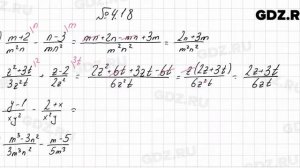 №418
GDZ.RU
) (m+2)/(m²n) \n - (n-3)/(mn²) \m = (mn+2n-mn+3m)/(m²n²) = (2n+3m)/(m²n²)
(z²+3t)/(3z²t) \2 - (z-2)/(2z²) \3t = (2z²+6t+3zt-6t)/(6z²t) = z(2z+3t)/(6z²t) = (2z+3t)/(6zt)
(y-1)/(xy²) - (2+x)/(x²y) =
(m³-3n²)/(3m³n²) - (m-5)/(5m³)
GDZ.RU